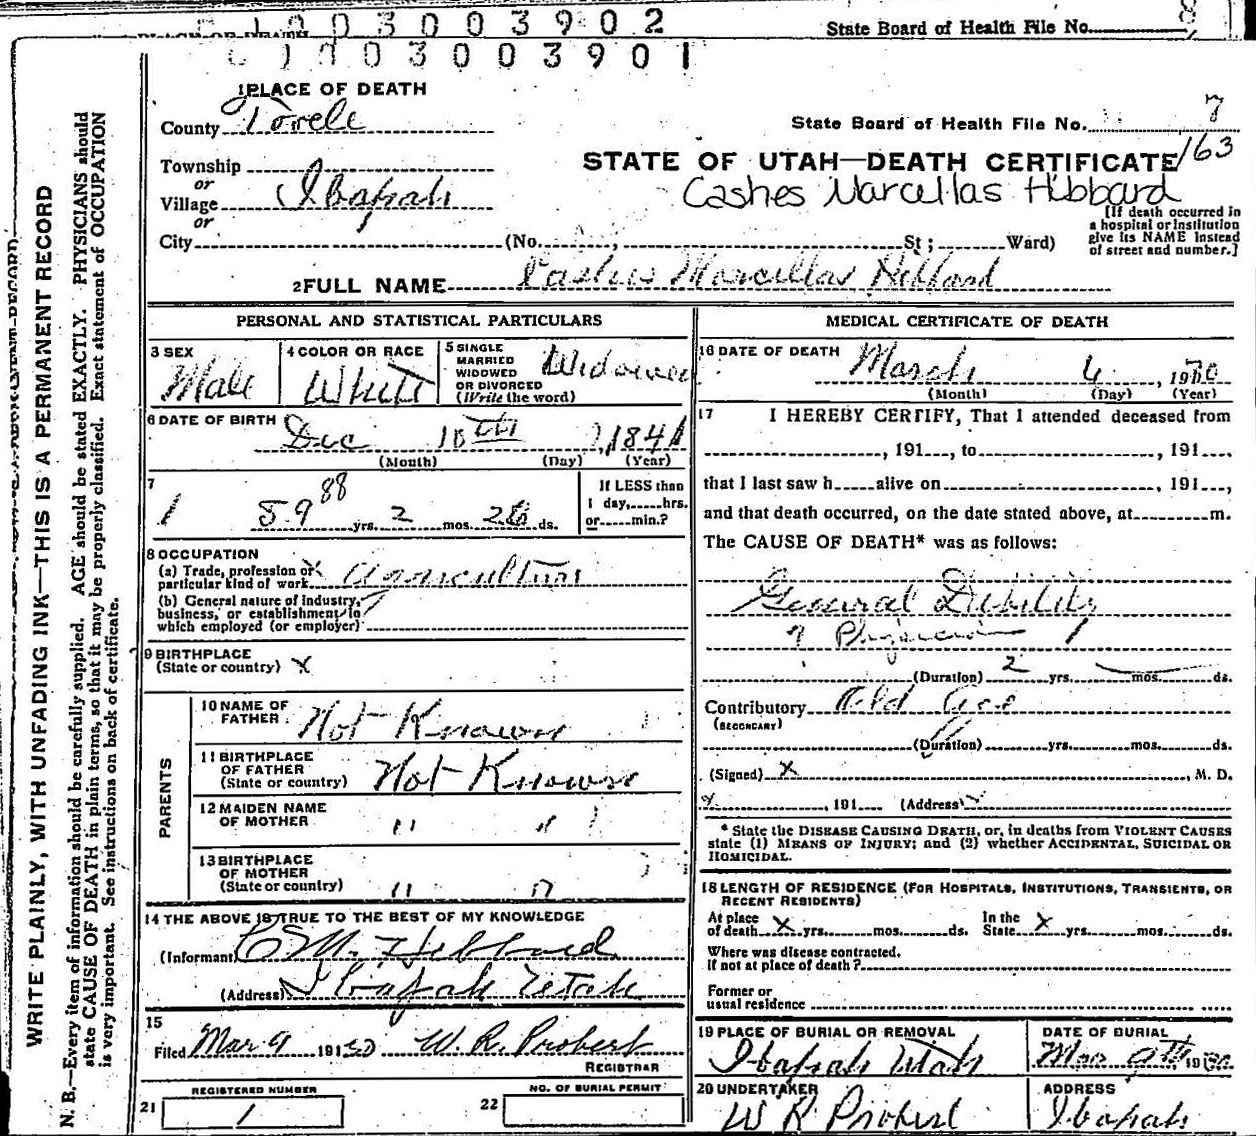 1 0 0 3 0 0 3 9 0 2
State Board of Health File No. 8
0 1 0 0 3 0 0 3 9 0 1
1 PLACE OF DEATH
County Tooele
State Board of Health File No. 7
163
STATE OF UTAH—DEATH CERTIFICATE
Township
or
Village Ibapah
or
Cashes Marcellas Hibbard
[If death occurred in
a hospital or institution
give its NAME instead
of street and number.]
City (No. , St; Ward)
2 FULL NAME Cashes Marcellas Hibbard
PERSONAL AND STATISTICAL PARTICULARS
3 SEX
Male
4 COLOR OR RACE
White
5 SINGLE
MARRIED
WIDOWED
OR DIVORCED
(Write the word)
Widowed
6 DATE OF BIRTH
Dec 10th, 1841
(Month) (Day) (Year)
7
88
1 89 yrs. 2 mos. 26 ds.
If LESS than
1 day, hrs.
or min.?
8 OCCUPATION
(a) Trade, profession or
particular kind of work x Agriculture
(b) General nature of industry,
business, or establishment in
which employed (or employer)
9 BIRTHPLACE
(State or country) x
PARENTS
10 NAME OF
FATHER Not Known
11 BIRTHPLACE
OF FATHER
(State or country) Not Known
12 MAIDEN NAME
OF MOTHER " "
13 BIRTHPLACE
OF MOTHER
(State or country) " "
14 THE ABOVE IS TRUE TO THE BEST OF MY KNOWLEDGE
(Informant) C M. Hibbard
(Address) Ibapah Utah
15
Filed Mar 9 1930 W. R. Probert
REGISTRAR
REGISTERED NUMBER
21 1
NO. OF BURIAL PERMIT
22
MEDICAL CERTIFICATE OF DEATH
16 DATE OF DEATH
March 6, 1930
(Month) (Day) (Year)
17 I HEREBY CERTIFY, That I attended deceased from
, 191 , to , 191 ,
that I last saw h alive on , 191 ,
and that death occurred, on the date stated above, at m.
The CAUSE OF DEATH* was as follows:
General Debility
? Physician 1
(Duration) 2 yrs. mos. ds.
Contributory Old Age
(SECONDARY)
(Duration) yrs. mos. ds.
(Signed) x , M. D.
x , 191 (Address) x
* State the DISEASE CAUSING DEATH, or, in deaths from VIOLENT CAUSES
state (1) MEANS OF INJURY; and (2) whether ACCIDENTAL, SUICIDAL OR
HOMICIDAL.
18 LENGTH OF RESIDENCE (FOR HOSPITALS, INSTITUTIONS, TRANSIENTS, OR
RECENT RESIDENTS)
At place
of death x yrs. mos. ds.
In the
State x yrs. mos. ds.
Where was disease contracted,
if not at place of death?
Former or
usual residence
19 PLACE OF BURIAL OR REMOVAL
Ibapah Utah
DATE OF BURIAL
Mar 9th, 1930
20 UNDERTAKER
W R Probert
ADDRESS
Ibapah
WRITE PLAINLY, WITH UNFADING INK—THIS IS A PERMANENT RECORD
N. B.—Every item of information should be carefully supplied. AGE should be stated EXACTLY. PHYSICIANS should
state CAUSE OF DEATH in plain terms, so that it may be properly classified. Exact statement of OCCUPATION
is very important. See instructions on back of certificate.